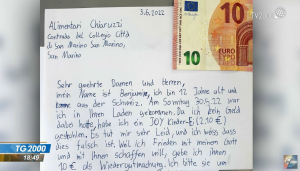 TV2000
3.6.2022
Alimentari Chiaruzzi
Contrada del Collegio Città
di San Marino San Marino,
San Marino
10
EURO
10
Sehr geehrte Damen und Herren,
mein Name ist Benjamin, ich bin 12 Jahre alt und
aus der Schweiz. Am Sonntag 30.5.22 war
ich in Ihren Laden gekommen. Da ich kein Geld
dabei hatte, habe ich ein JOY Kinder-E (2.10 €)
gestohlen. Es tut mir sehr Leid, und ich weiss dass
dies falsch ist. Weil ich Frieden mit meinem Gott
und mit Ihnen schaffen will, gebe ich Ihnen
10 € als Wiedergutmachung. Ich bitte sie um
TG 2000
18:49